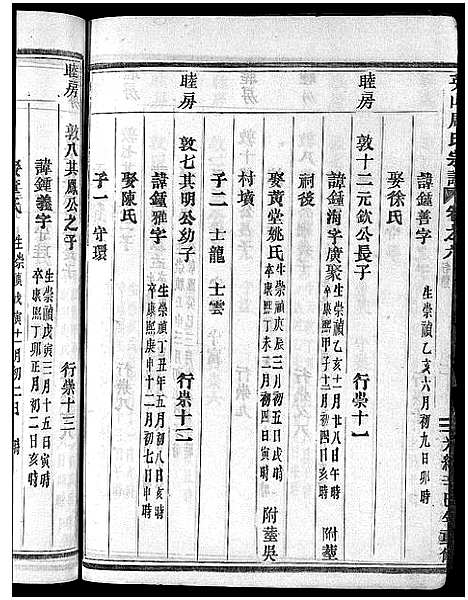 諱鍾善字 生崇禎乙亥六月初九日卯時
娶徐氏
睦房
敦十二元欽公長子 行崇十一
諱鍾海字廣聚 生崇禎乙亥十一月廿八日午時 卒康熙甲子十二月初四日亥時 附葬
祠後
娶黃堂姚氏 生崇禎庚辰三月初五日戌時 卒康熙丁未三月初四日亥時 附葬吳
村墳
子二 士龍 士雲
敦七其明公幼子 行崇十二
諱鍾雅字 生崇禎丁丑年五月初八日亥時 卒康熙庚申十二月初七日申時
娶陳氏
子一 守環
睦房
敦八其鳳公之子 行崇十三
諱鍾義字 生崇禎戊寅三月十五日寅時 卒康熙丁卯正月初二日亥時
生崇禎戊寅十一月初二日 時